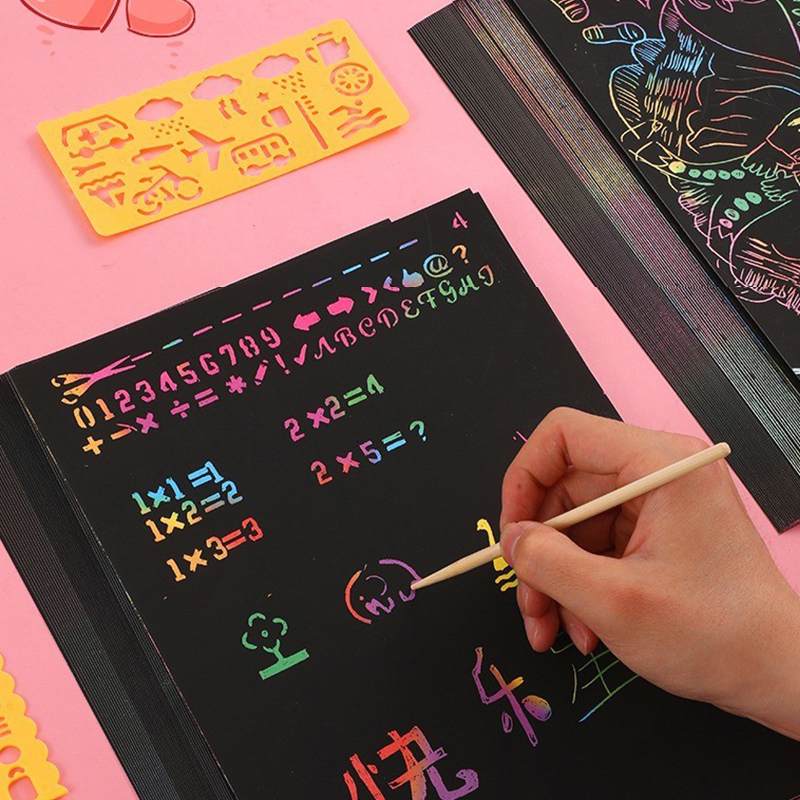 4
0123456789 ➡ @ ?
+ - × ÷ = * ! ✓ ABCDEFGHI
2×2=4
2×5=?
1×1=1
1×2=2
1×3=3
快乐